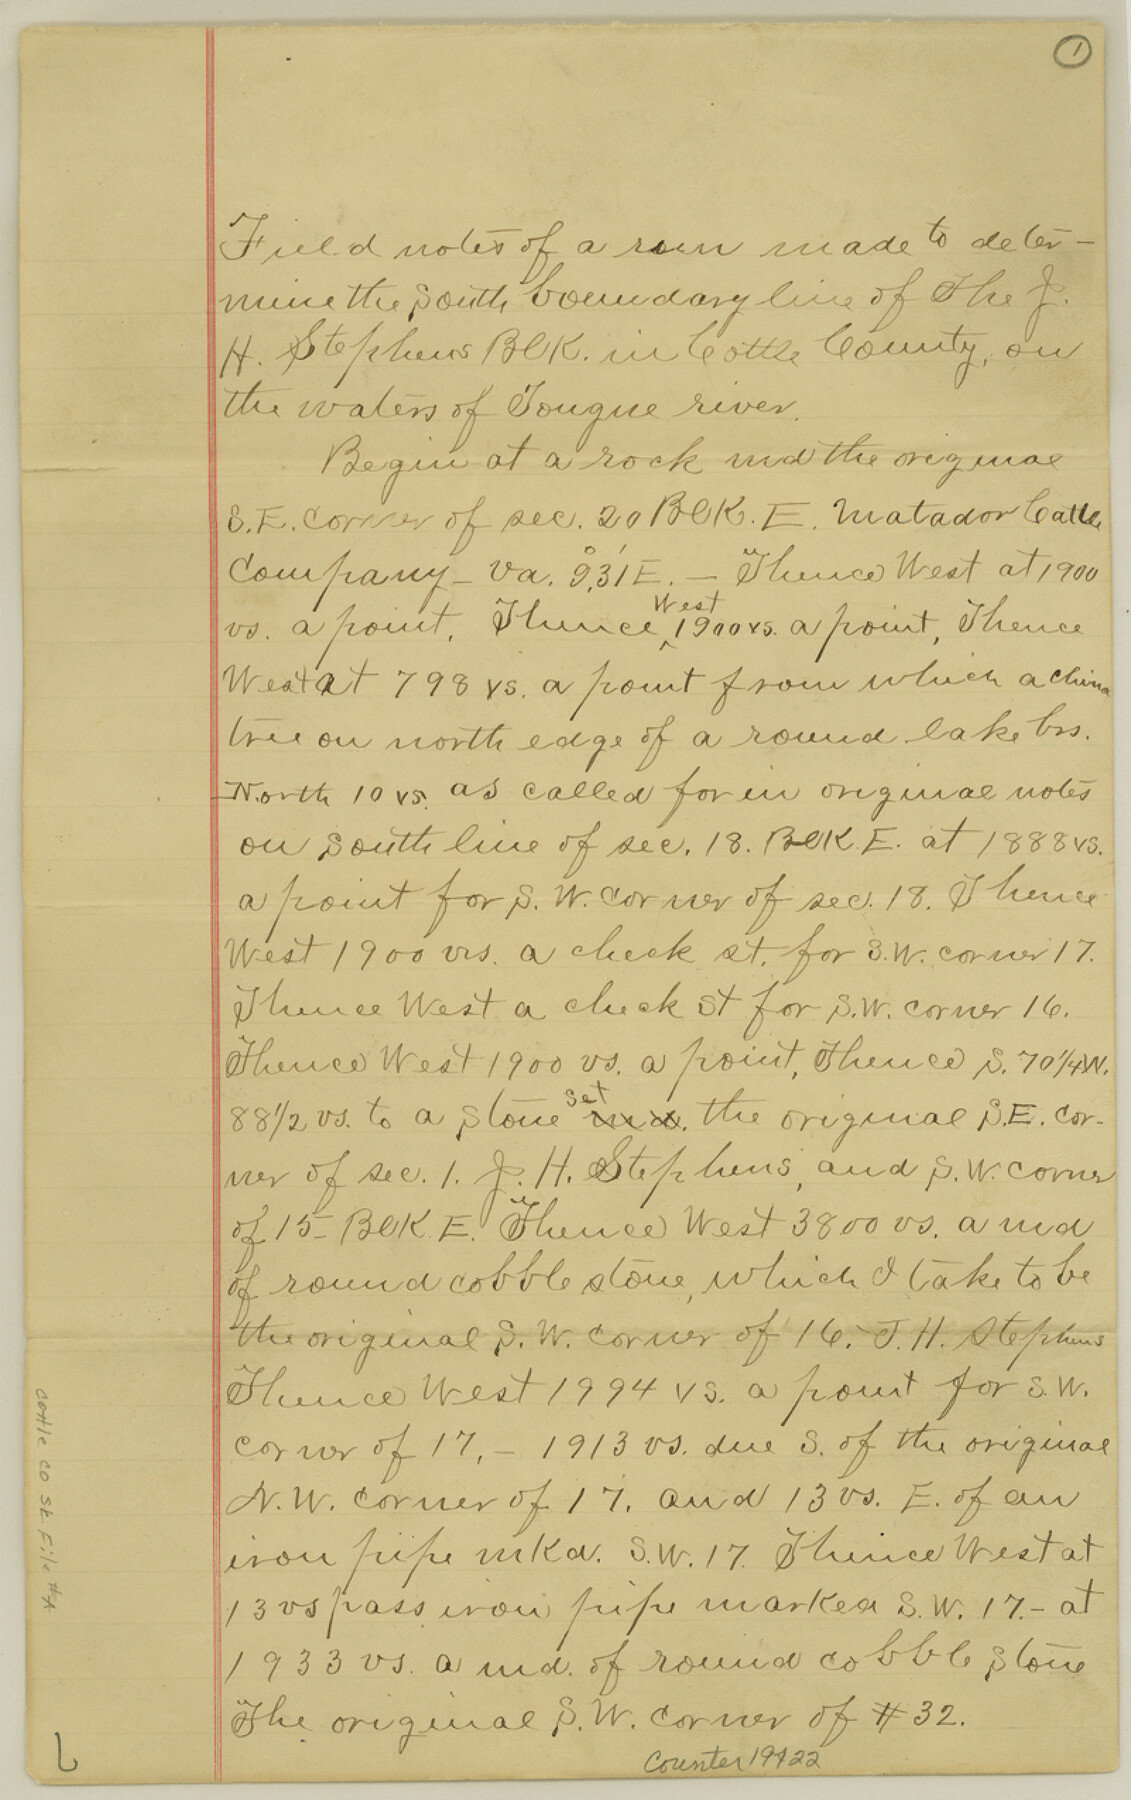 1
Field notes of a run made to deter-
mine the South boundary line of The J.
H. Stephens BlK. in Cottle County, on
the waters of Tongue river.
Begin at a rock md the original
S.E. corner of sec. 20 BlK. E. Matador Cattle
Company - Va. 9°,31' E. - Thence West at 1900
vs. a point, Thence West 1900 vs. a point, Thence
West at 798 vs. a point from which a china
tree on north edge of a round lake brs.
North 10 vs. as called for in original notes
on South line of sec. 18. BlK. E. at 1888 vs.
a point for S. W. corner of sec. 18. Thence
West 1900 vrs. a check st. for S.W. corner 17.
Thence West a check st for S.W. corner 16.
Thence West 1900 vs. a point, Thence S. 70 1/4 W.
88 1/2 vs. to a stone set the original S.E. cor-
ner of sec. 1. J. H. Stephens, and S.W. corner
of 15- BlK E. Thence West 3800 vs. a md
of round cobble stone, which I take to be
the original S. W. corner of 16. J. H. Stephens
Thence West 1994 vs. a point for S.W.
corner of 17, - 1913 vs. due S. of the original
N. W. corner of 17. and 13 vs. E. of an
iron pipe mKd. S.W. 17. Thence West at
13 vs pass iron pipe marked S.W. 17. - at
1933 vs. a md. of round cobble stone
The original S.W. corner of # 32.
Counter 19422
Cottle Co Sk File #A